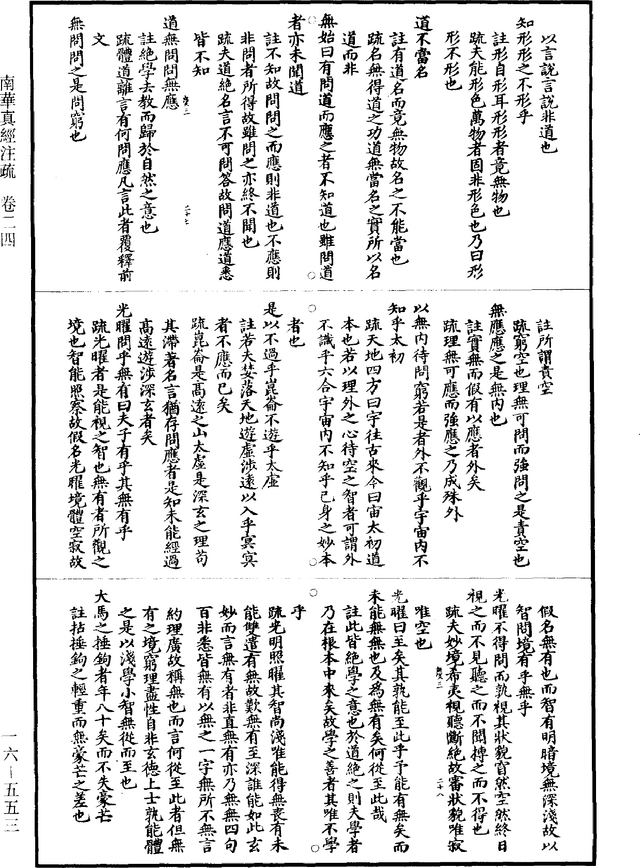 以言說言說非道也
知形形之不形乎
註形自形耳形形者竟無物也
疏夫能形色萬物者固非形色也乃曰形
形不形也
道不當名
註有道名而竟無物故名之不能當也
疏名無得道之功道無當名之實所以名
道而非
無始曰有問道而應之者不知道也雖問道
者亦未聞道
註不知故問問之而應則非道也不應則
非問者所得故雖問之亦終不聞也
疏夫道絕名言不可問答故問道應道悉
皆不知
道無問問無應
註絕學去教而歸於自然之意也
疏體道離言有何問應凡言此者覆釋前
文
無問問之是問窮也
南華真經注疏 卷二四
註所謂責空
疏窮空也理無可問而強問之是責空也
無應應之是無內也
註實無而假有以應者外矣
疏理無可應而強應之乃成殊外
以無內待問窮若是者外不觀乎宇宙內不
知乎太初
疏天地四方曰宇往古來今曰宙太初道
本也若以理外之心待空之智者可謂外
不識乎六合宇宙內不知乎己身之妙本
者也
是以不過乎崑崙不遊乎太虛
註若夫婪落天地遊虛涉遠以入乎冥冥
者不應而已矣
疏崑崙是高遠之山太虛是深玄之理苟
其滯著名言猶存問應者是知未能經過
高遠遊涉深玄者矣
光曜問乎無有曰夫子有乎其無有乎
疏光曜者是能視之智也無有者所觀之
境也智能照察故假名光曜境體空寂故
假名無有也而智有明暗境無深淺故以
智問境有乎無乎
光曜不得問而孰視其狀貌窅然空然終日
視之而不見聽之而不聞搏之而不得也
疏夫妙境希夷視聽斷絕故審狀貌唯寂
唯空也
光曜曰至矣其孰能至此乎予能有無矣而
未能無無也及為無有矣何從至此哉
註此皆絕學之意也於道絕之則夫學者
乃在根本中來矣故學之善者其唯不學
乎
疏光明照曜其智尚淺唯能得無喪有未
能雙遣有無故歎無有至深誰能如此玄
妙而言無有者非直無有亦乃無無四句
百非悉皆無有以無之一字無所不無言
約理廣故稱無也而言何從至此者但無
有之境窮理盡性自非玄德上士孰能體
之是以淺學小智無從而至也
大馬之捶鉤者年八十矣而不失豪芒
註拈捶鉤之輕重而無豪芒之差也
一六—五五三